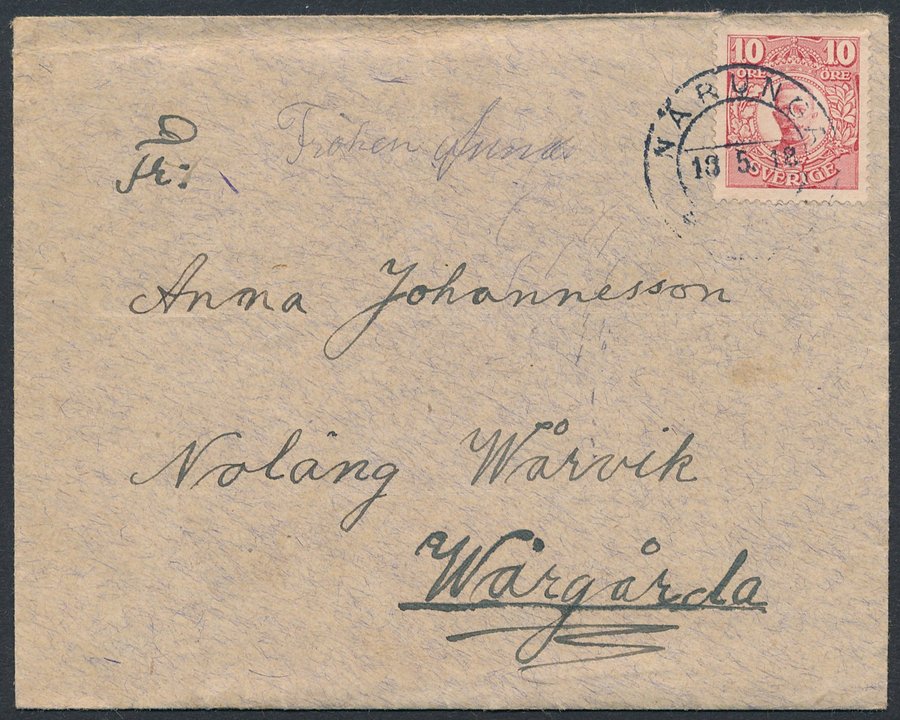 10 10
ÖRE ÖRE
SVERIGE
NÄRUNGA
13 5.18
Fröken Anna
Fr:
Anna Johannesson
Noläng Wårvik
Wårgårda